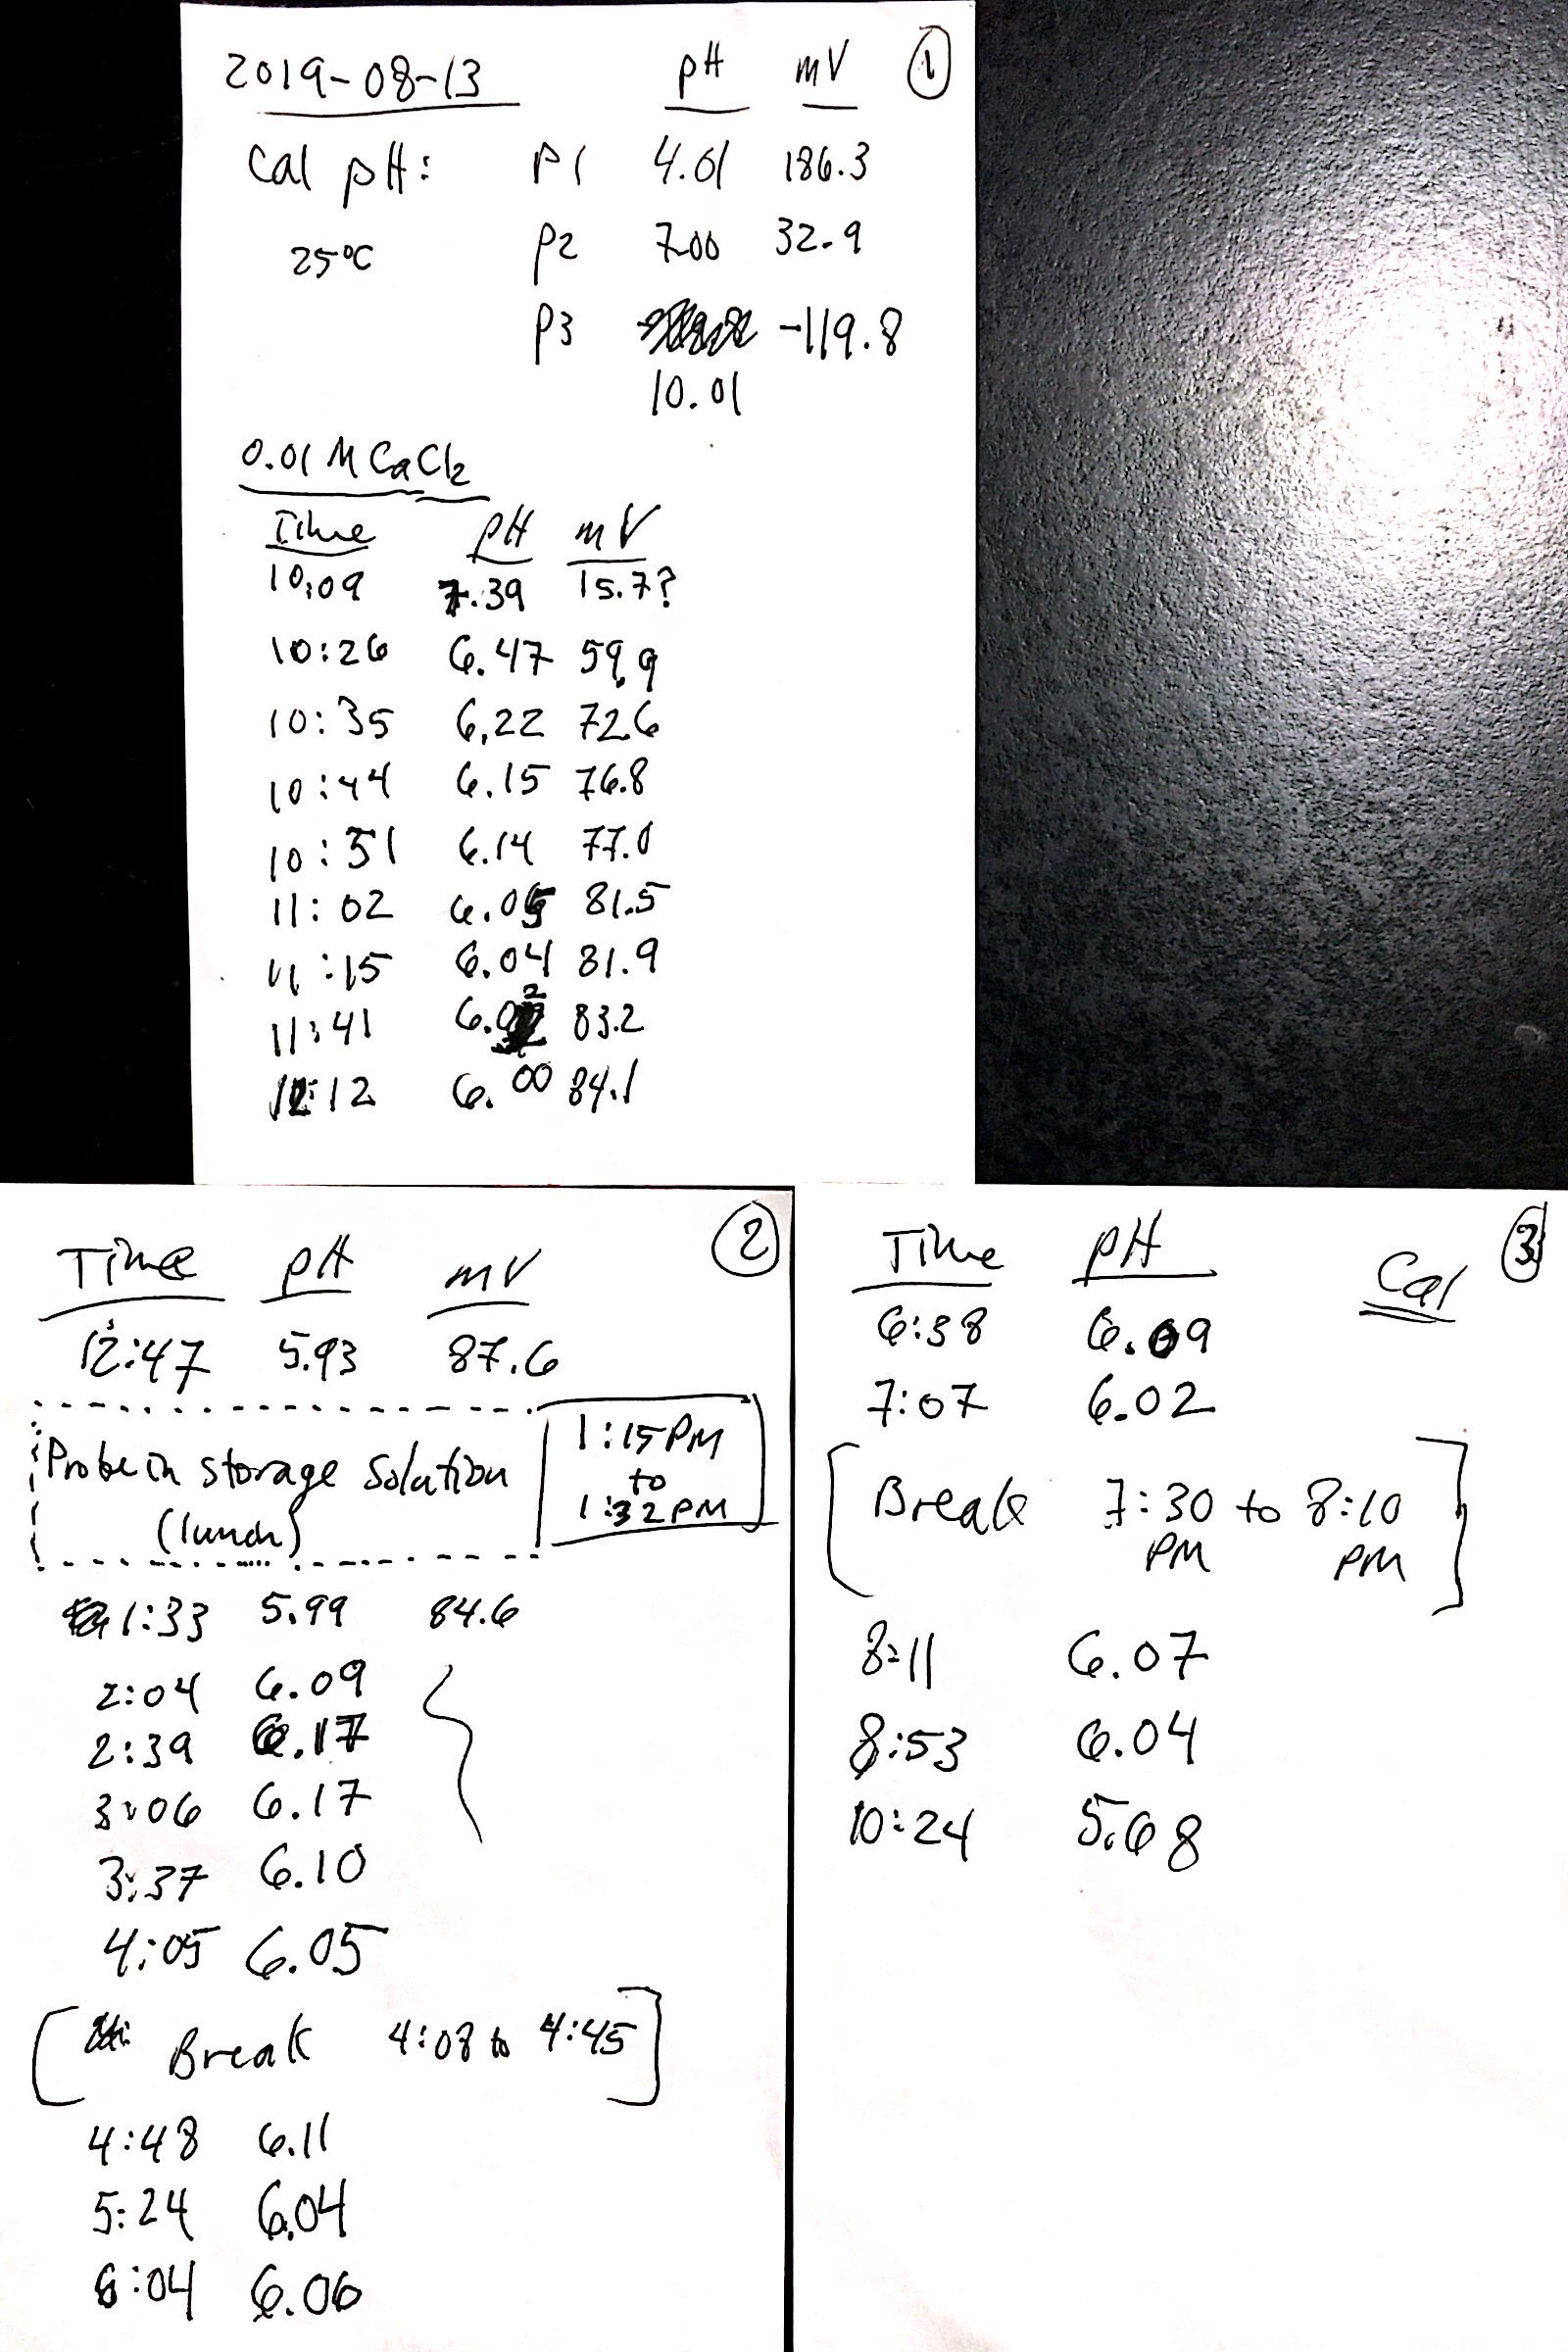 2019-08-13 pH mV 1
Cal pH: P1 4.01 186.3
25°C P2 7.00 32.9
P3 -119.8
10.01
0.01 M CaCl2
Time pH mV
10:09 7.39 15.7?
10:26 6.47 59.9
10:35 6.22 72.6
10:44 6.15 76.8
10:51 6.14 77.0
11:02 6.05 81.5
11:15 6.04 81.9
11:41 6.02 83.2
12:12 6.00 84.1
Time pH mV 2
12:47 5.93 87.6
Probe in storage solution
(lunch)
1:15 PM
to
1:32 PM
1:33 5.99 84.6
2:04 6.09
2:39 6.17
3:06 6.17
3:37 6.10
4:05 6.05
[Break 4:08 to 4:45]
4:48 6.11
5:24 6.04
6:04 6.06
Time pH Cal 3
6:38 6.09
7:07 6.02
[Break 7:30 to 8:10]
PM PM
8:11 6.07
8:53 6.04
10:24 5.68